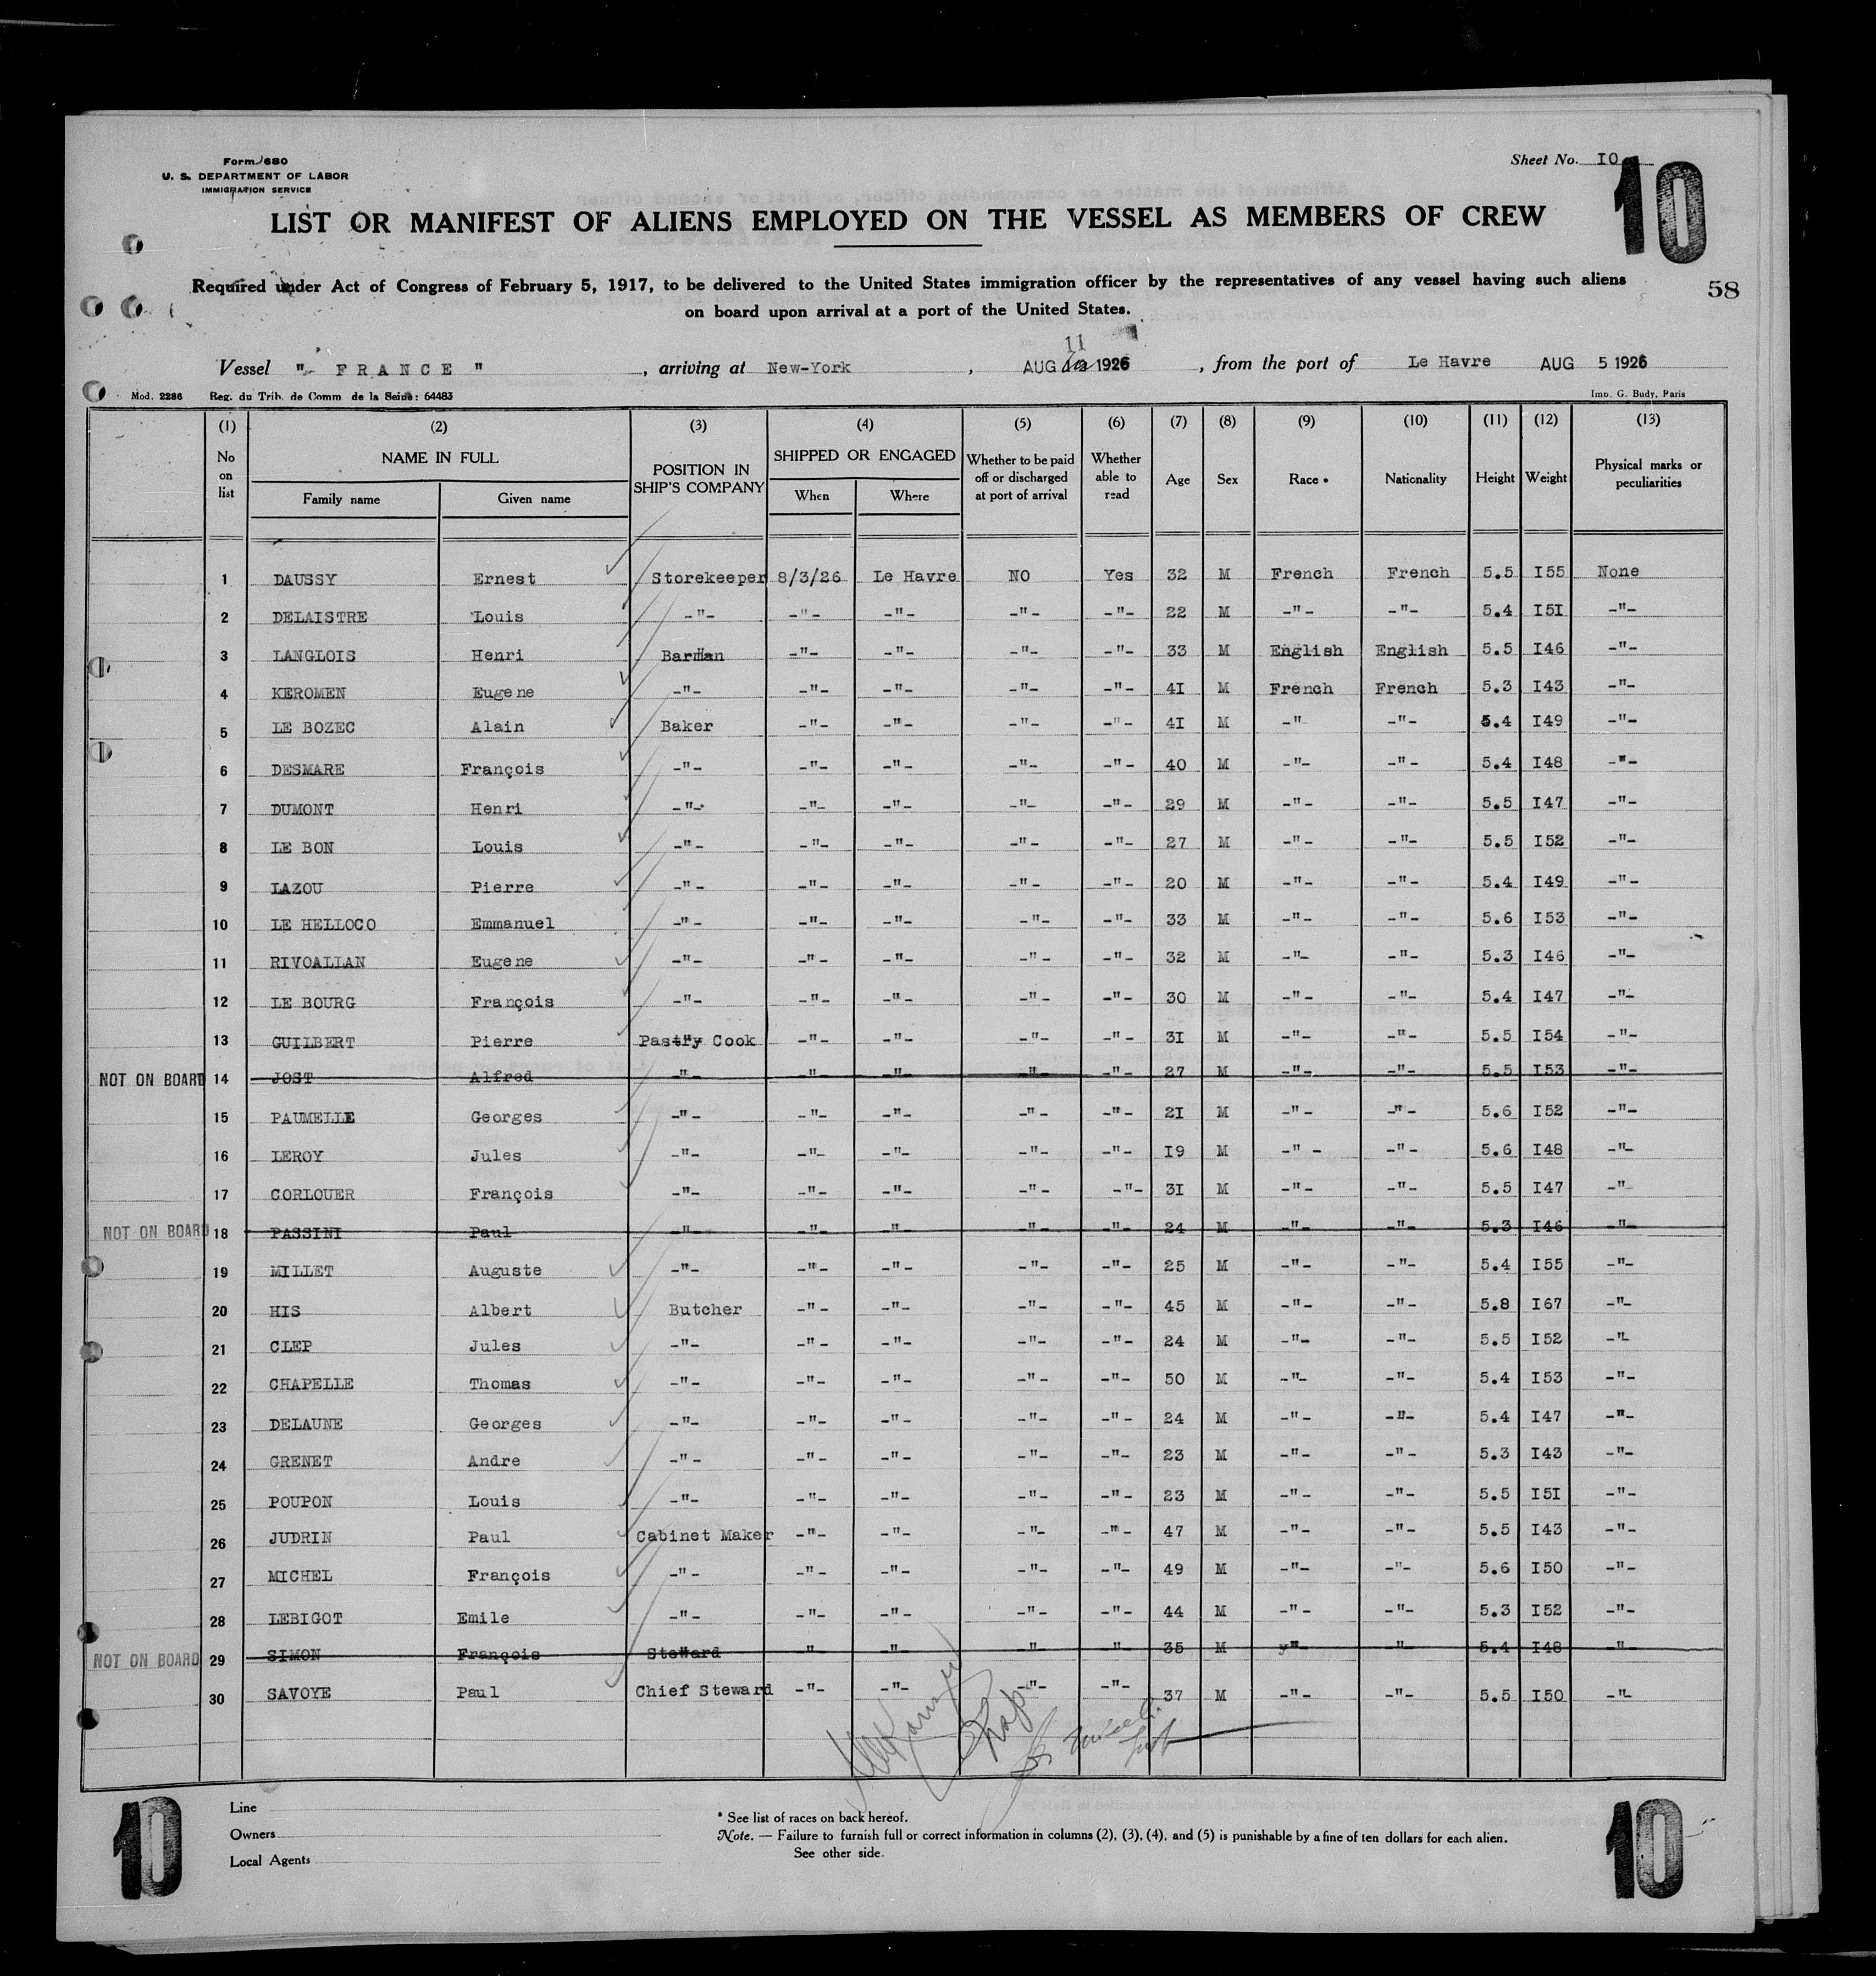 Form 680
U. S. DEPARTMENT OF LABOR
IMMIGRATION SERVICE
Sheet No. I0
10
LIST OR MANIFEST OF ALIENS EMPLOYED ON THE VESSEL AS MEMBERS OF CREW
Required under Act of Congress of February 5, 1917, to be delivered to the United States immigration officer by the representatives of any vessel having such aliens
on board upon arrival at a port of the United States.
58
11
Vessel " FRANCE ", arriving at New-York, AUG 1926, from the port of Le Havre AUG 5 1926
Mod. 2286 Reg. du Trib. de Comm de la Seine: 64483 Imp. G. Budy, Paris
(1) (2) (3) (4) (5) (6) (7) (8) (9) (10) (11) (12) (13)
No on list NAME IN FULL Family name Given name POSITION IN SHIP'S COMPANY SHIPPED OR ENGAGED When Where Whether to be paid off or discharged at port of arrival Whether able to read Age Sex Race • Nationality Height Weight Physical marks or peculiarities
1 DAUSSY Ernest Storekeeper 8/3/26 Le Havre NO Yes 32 M French French 5.5 I55 None
2 DELAISTRE Louis -"- -"- -"- -"- -"- 22 M -"- -"- 5.4 I5I -"-
3 LANGLOIS Henri Barman -"- -"- -"- -"- 33 M English English 5.5 I46 -"-
4 KEROMEN Eugene -"- -"- -"- -"- -"- 4I M French French 5.3 I43 -"-
5 LE BOZEC Alain Baker -"- -"- -"- -"- 4I M -" -"- 5.4 I49 -"-
6 DESMARE François -"- -"- -"- -"- -"- 40 M -"- -"- 5.4 I48 -"-
7 DUMONT Henri -"- -"- -"- -"- -"- 29 M -"- -"- 5.5 I47 -"-
8 LE BON Louis -"- -"- -"- -"- -"- 27 M -"- -"- 5.5 I52 -"-
9 LAZOU Pierre -"- -"- -"- -"- -"- 20 M -"- -"- 5.4 I49 -"-
10 LE HELLOCO Emmanuel -"- -"- -"- -"- -"- 33 M -"- -"- 5.6 I53 -"-
11 RIVOALLAN Eugene -"- -"- -"- -"- -"- 32 M -"- -"- 5.3 I46 -"-
12 LE BOURG François -"- -"- -"- -"- -"- 30 M -"- -"- 5.4 I47 -"-
13 GUILBERT Pierre Pastry Cook -"- -"- -"- -"- 3I M -"- -"- 5.5 I54 -"-
NOT ON BOARD 14 JOST Alfred -"- -"- -"- -"- -"- 27 M -"- -"- 5.5 I53 -"-
15 PAUMELLE Georges -"- -"- -"- -"- -"- 2I M -"- -"- 5.6 I52 -"-
16 LEROY Jules -"- -"- -"- -"- -"- I9 M -"- -"- 5.6 I48 -"-
17 CORLOUER François -"- -"- -"- -"- -"- 3I M -"- -"- 5.5 I47 -"
NOT ON BOARD 18 PASSINI Paul -"- -"- -"- -"- -"- 24 M -"- -"- 5.3 I46 -"-
19 MILLET Auguste -"- -"- -"- -"- -"- 25 M -"- -"- 5.4 I55 -"-
20 HIS Albert Butcher -"- -"- -"- -"- 45 M -"- -"- 5.8 I67 -"-
21 CLEP Jules -"- -"- -"- -"- -"- 24 M -"- -"- 5.5 I52 -"-
22 CHAPELLE Thomas -"- -"- -"- -"- -"- 50 M -"- -"- 5.4 I53 -"-
23 DELAUNE Georges -"- -"- -"- -"- -"- 24 M -"- -"- 5.4 I47 -"-
24 GRENET Andre -"- -"- -"- -"- -"- 23 M -"- -"- 5.3 I43 -"-
25 POUPON Louis -"- -"- -"- -"- -"- 23 M -"- -"- 5.5 I5I -"-
26 JUDRIN Paul Cabinet Maker -"- -"- -"- -"- 47 M -"- -"- 5.5 I43 -"-
27 MICHEL François -"- -"- -"- -"- -"- 49 M -"- -"- 5.6 I50 -"-
28 LEBIGOT Emile -"- -"- -"- -"- -"- 44 M -"- -"- 5.3 I52 -"-
NOT ON BOARD 29 SIMON François Steward -"- -"- -"- -"- 35 M -"- -"- 5.4 I48 -"
30 SAVOYE Paul Chief Steward -"- -"- -"- -"- 37 M -"- -"- 5.5 I50 -"-
10
Line
Owners
Local Agents
* See list of races on back hereof.
Note. — Failure to furnish full or correct information in columns (2), (3), (4), and (5) is punishable by a fine of ten dollars for each alien.
See other side.
10